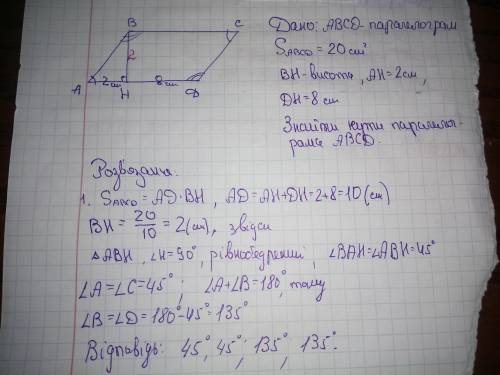 B C
2
A 2см H 8см D
Дано: ABCD - паралелограм
S_ABCD = 20 см²
BH - висота, AH = 2 см,
DH = 8 см
Знайти кути паралелог-
рама ABCD.
Розв'язання:
1. S_ABCD = AD·BH, AD = AH+DH = 2+8 = 10 (см)
BH = 20/10 = 2 (см), звідси
△ABH, ∠H = 90°, рівнобедрений, ∠BAH = ∠ABH = 45°
∠A = ∠C = 45°; ∠A + ∠B = 180°, тому
∠B = ∠D = 180° - 45° = 135°
Відповідь: 45°, 45°, 135°, 135°.